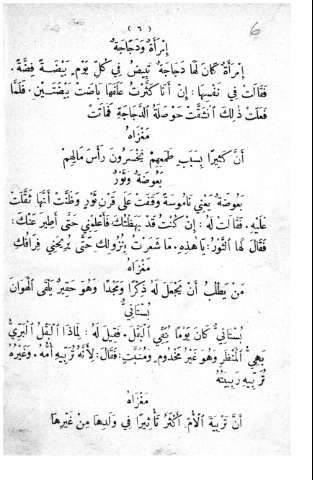 ( ٦ )
6
إِمْرَأَةٌ وَدَجَاجَةٌ
إِمْرَأَةٌ كَانَ لَهَا دَجَاجَةٌ تَبِيضُ فِي كُلِّ يَوْمٍ بَيْضَةَ فِضَّةٍ.
فَقَالَتْ فِي نَفْسِهَا: إِنْ أَنَا كَثَّرْتُ عَلَفَهَا بَاضَتْ بَيْضَتَيْنِ. فَلَمَّا
فَعَلَتْ ذٰلِكَ ٱنْشَقَّتْ حَوْصَلَةُ ٱلدَّجَاجَةِ فَمَاتَتْ
مَغْزَاهُ
أَنَّ كَثِيرًا بِسَبَبِ طَمَعِهِمْ يَخْسَرُونَ رَأْسَ مَالِهِمْ
بَعُوضَةٌ وَثَوْرٌ
بَعُوضَةٌ يَعْنِي نَامُوسَةً وَقَفَتْ عَلَى قَرْنِ ثَوْرٍ وَظَنَّتْ أَنَّهَا ثَقُلَتْ
عَلَيْهِ. فَقَالَتْ لَهُ: إِنْ كُنْتُ قَدْ بَهَظْتُكَ فَأَعْلِمْنِي حَتَّى أَطِيرَ عَنْكَ:
فَقَالَ لَهَا ٱلثَّوْرُ: يَا هٰذِهِ. مَا شَعَرْتُ بِنُزُولِكِ حَتَّى يُرِيحَنِي فِرَاقُكِ
مَغْزَاهُ
مَنْ يَطْلُبُ أَنْ يَجْعَلَ لَهُ ذِكْرًا وَمَجْدًا وَهُوَ حَقِيرٌ يَلْقَى ٱلْهَوَانَ
بُسْتَانِيٌّ
بُسْتَانِيٌّ كَانَ يَوْمًا يُنَقِّي ٱلْبَقْلَ. فَقِيلَ لَهُ: لِمَاذَا ٱلْبَقْلُ ٱلْبَرِّيُّ
بَهِيُّ ٱلْمَنْظَرِ وَهُوَ غَيْرُ مَخْدُومٍ وَمُنَبَّتٍ: فَقَالَ: لِأَنَّهُ تُرَبِّيهِ أُمُّهُ. وَغَيْرُهُ
تُرَبِّيهِ رَبِيبَتُهُ
مَغْزَاهُ
أَنَّ تَرْبِيَةَ ٱلْأُمِّ أَكْثَرُ تَأْثِيرًا فِي وَلَدِهَا مِنْ غَيْرِهَا